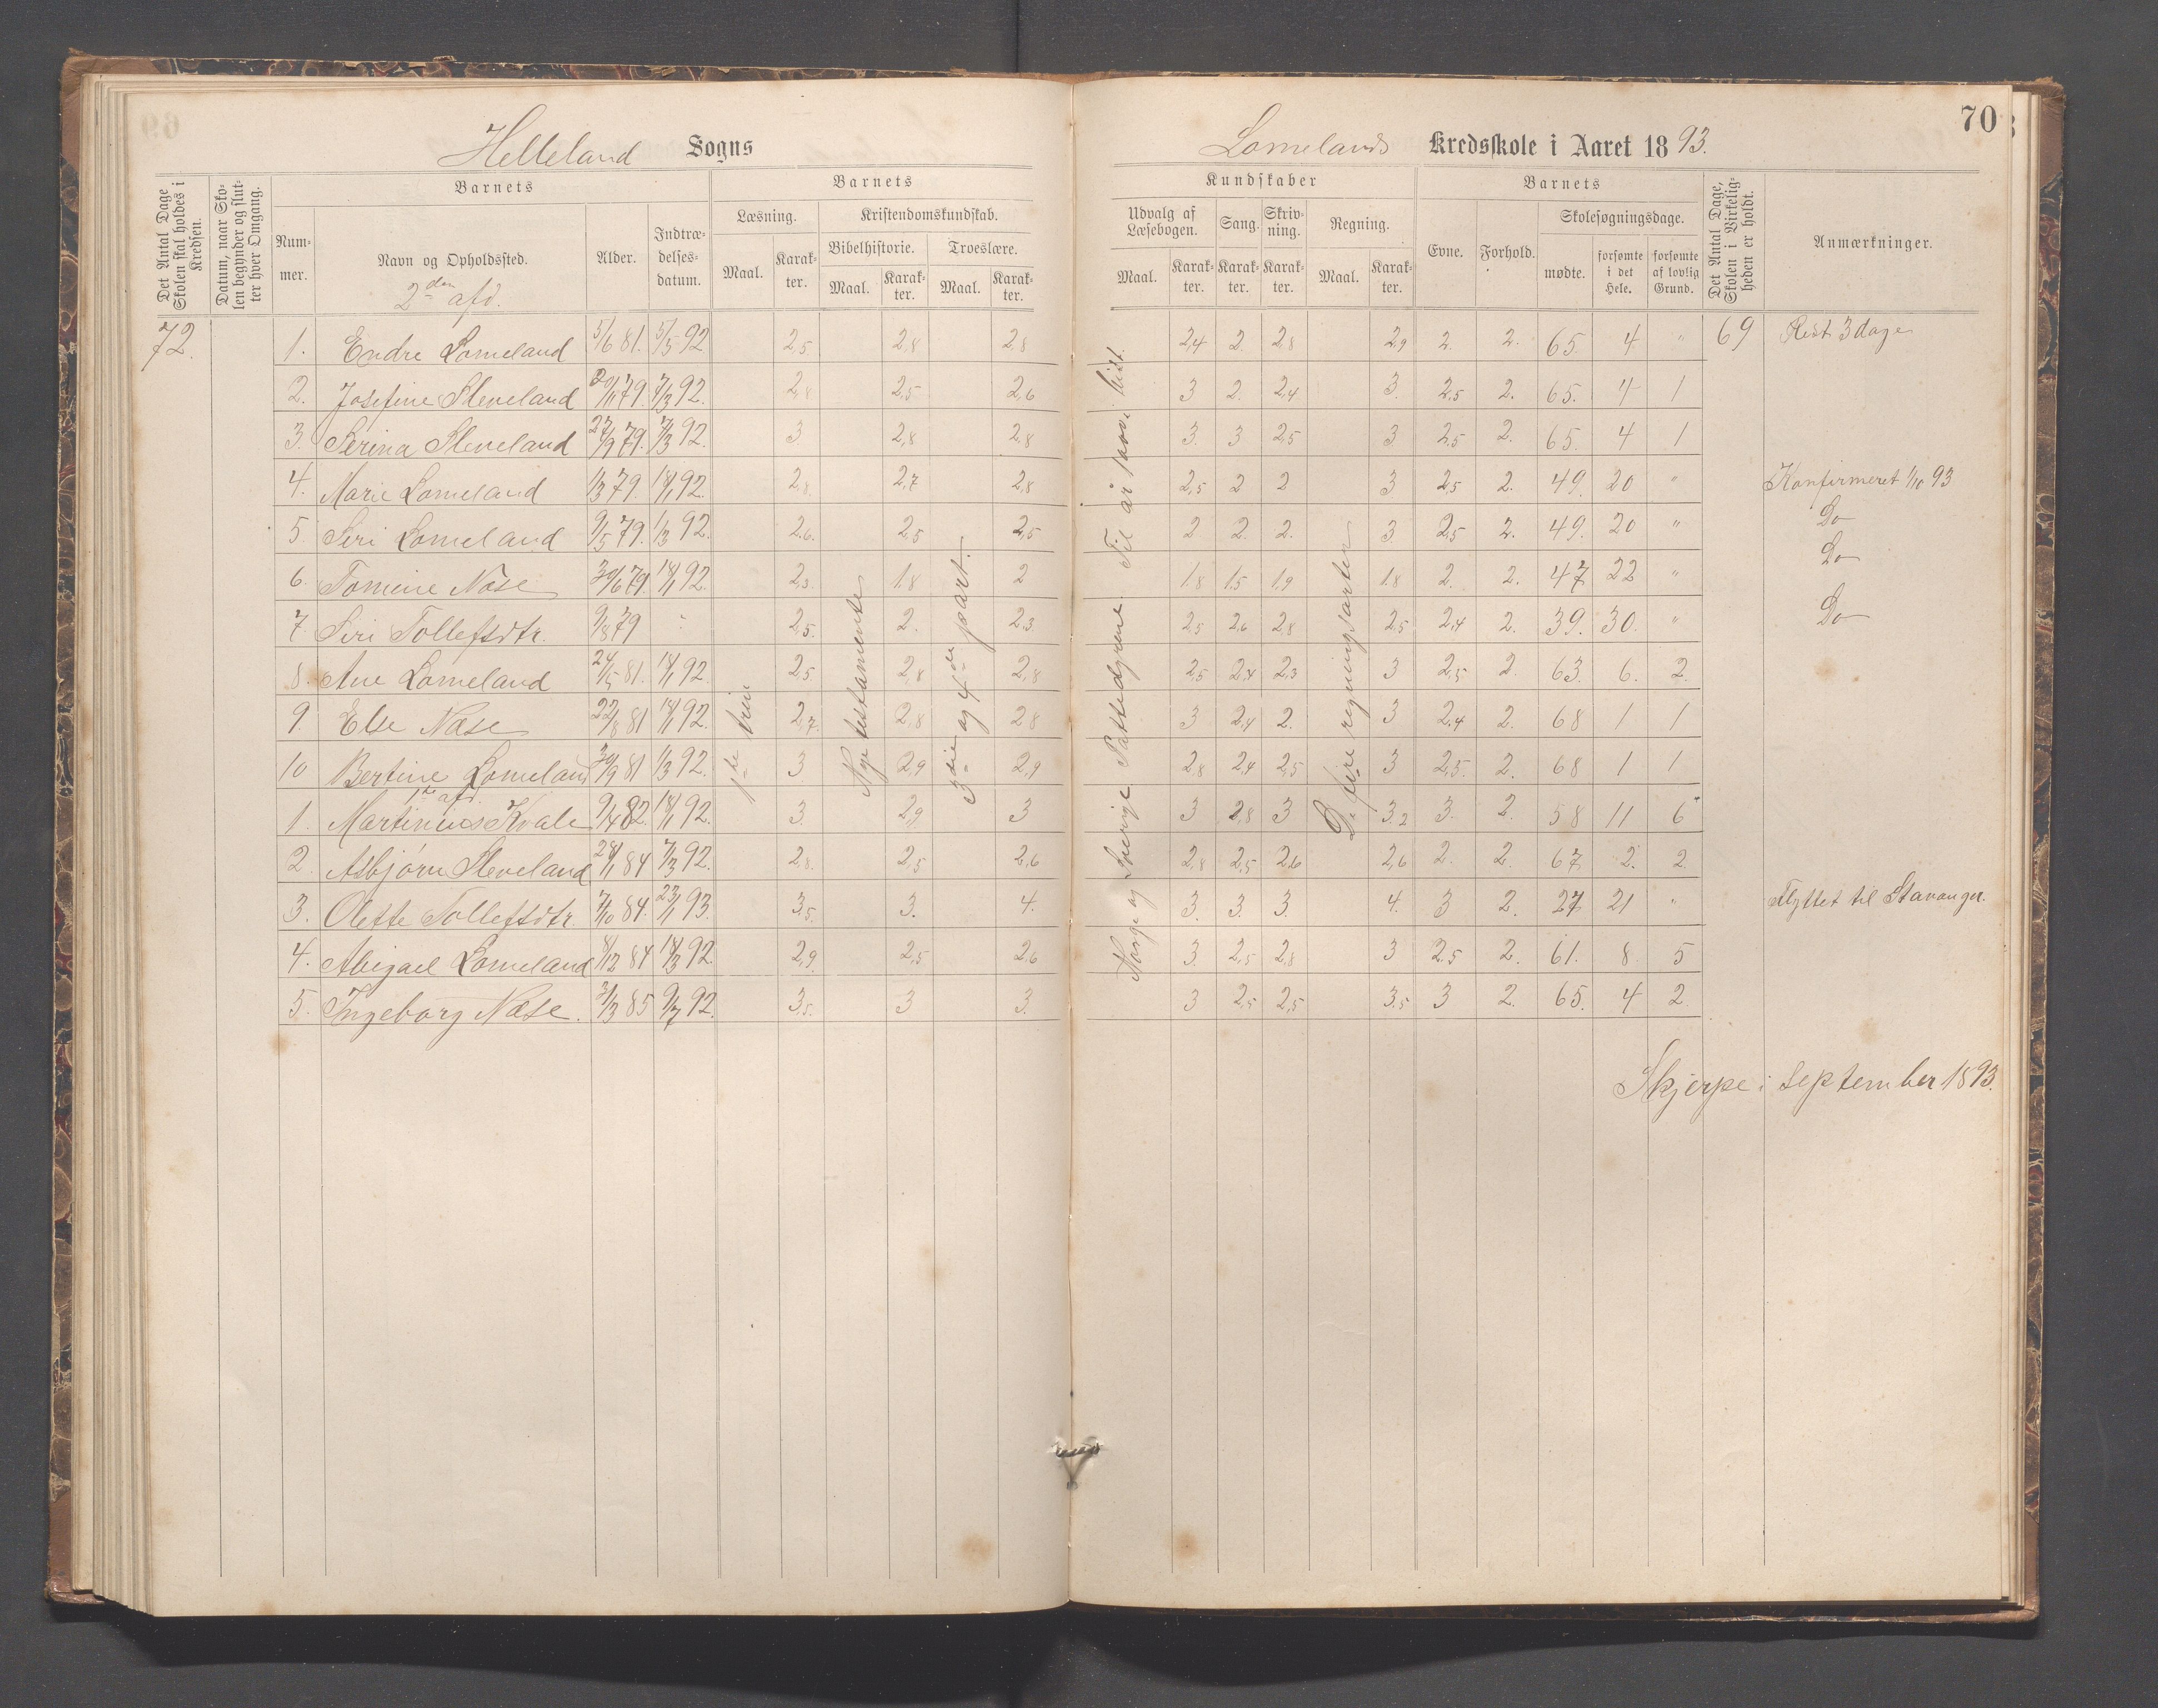 70
Helleland Sogns
Lomelands Kredsskole i Aaret 1893.
Det Antal Dage Skolen skal holdes i Kredsen.
Datum, naar Skolen begynder og slutter hver Omgang.
Nummer.
Barnets
Navn og Opholdssted.
2den afd.
Alder.
Indtrædelsesdatum.
Barnets
Læsning.
Maal.
Karakter.
Kristendomskundskab.
Bibelhistorie.
Maal.
Karakter.
Troeslære.
Maal.
Karakter.
Kundskaber
Udvalg af Læsebogen.
Maal.
Karakter.
Sang.
Karakter.
Skrivning.
Karakter.
Regning.
Maal.
Karakter.
Barnets
Evne.
Forhold.
Skolesøgningsdage.
mødte.
forsømte i det Hele.
forsømte af lovlig Grund.
Det Antal Dage, Skolen i Virkeligheden er holdt.
Anmærkninger.
72. 1. Endre Lomeland 5/6 81. 5/5 92 2,5. 2,8 2,8 2,4 2. 2,8 2,9 2. 2. 65. 4 " 69 Rest 3 dage
2. Josefine Sleveland 20/11 79. 7/3 92. 2,8 2,5 2,6 3 2. 2,4 3. 2,5 2. 65. 4 1
3. Serina Sleveland 27/9 79. 7/3 92. 3 2,8 2,8 3. 3 2,5 3 2,5 2. 65. 4 1
4. Marie Lomeland 1/3 79. 18/1 92. 2,8 2,7 2,8 2,5 2 2 3 2,5 2. 49. 20 " Konfirmeret 1/10 93
5. Seri Lomeland 9/5 79. 1/3 92. 2.6. 2,5 2,5 2 2. 2. 3. 2,5 2. 49. 20 " Do
6. Tomine Næse 30/6 79. 18/1 92. 2,3. 1,8 2 1,8 1,5 1,9 1,8 2. 2. 47 22 " Do
7 Siri Tollefsdtr. 9/8 79 " 2,5. 2. 2,3. 2,5 2,6 2,8 2,5 2,4 2. 39. 30. " Do
8. Ane Lomeland 24/5 81. 18/1 92. 2,5 2,8 2,8 2,5 2,4 2,3 3 2,5 2. 63. 6. 2.
9. Else Næse 22/8 81 18/1 92. 2,7. 2,8 2,8 3 2,4 2. 3 2,4 2. 68 1 1
10 Bertine Lomeland 30/9 81 1/3 92. 3 2,9 2,9 2,8 2,4 2,5 3 2,5. 2. 68 1 1
1te afd.
1. Martinius Kvale 9/4 82. 18/1 92. 3. 2,9 3 3 2,8 3 3.2 3. 2. 58 11 6
2. Asbjørn Sleveland 28/1 84 7/3 92. 2,8. 2,5 2,6 2,8 2,5 2,6 2,6 2. 2. 67. 2. 2.
3. Olette Tollefsdtr. 7/10 84. 23/1 93. 3,5 3. 4. 3. 3. 3. 4. 3 2. 27 21 " Flyttet til Stavanger.
4. Abigael Lomeland 8/12 84 18/3 92. 2,9. 2,5 2,6 3. 2,5 2,8 3 2.5 2. 61. 8. 5
5. Ingeborg Næse. 3/3 85 9/7 92. 3,5. 3 3. 3 2,5 2,5 3.5 3 2. 65. 4 2.
1te trin
Nye testamente
3die og 4de part.
Norge og Sverige Pattedyrene. Til
De fire regningsarter
Skjerpe i september 1893.